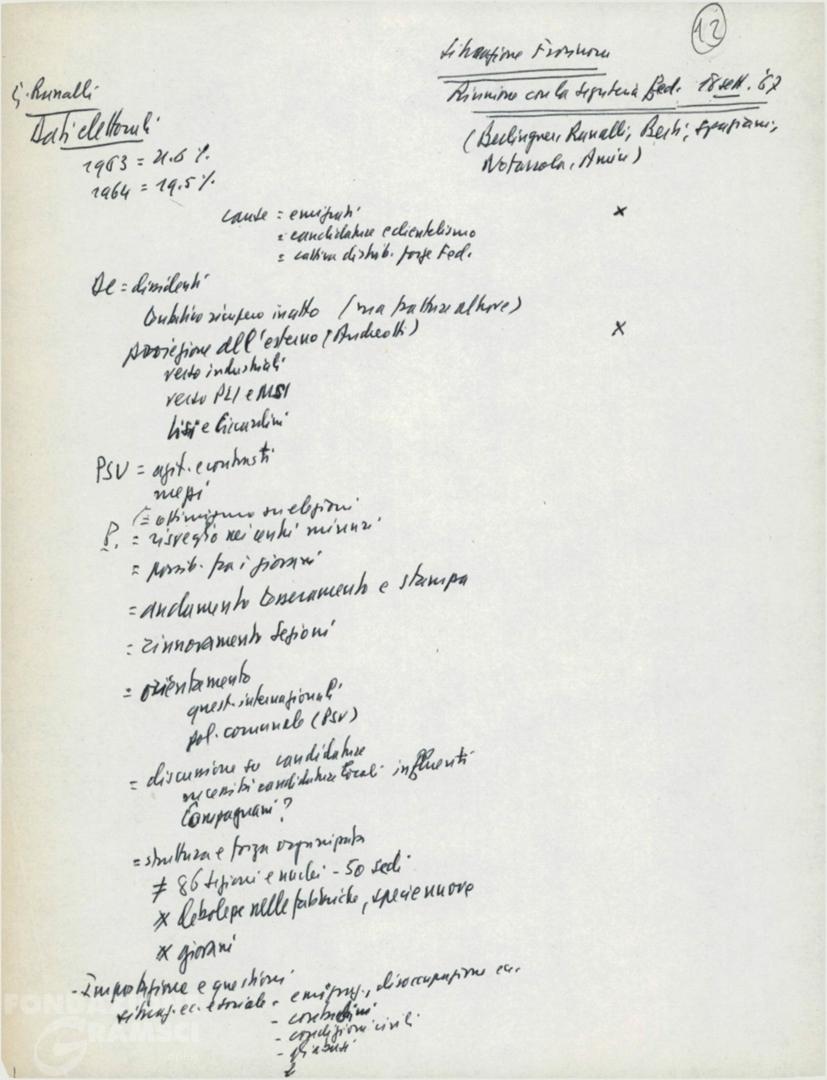 12
Situazione Frosinone
Riunione con la segreteria Fed. 18 sett. '67
(Berlinguer, Runalli, Berti, Spaziani,
Notazzola, Amici)
G. Runalli
Dati elettorali
1963 = 21.6 %
1964 = 19.5 %
cause = emigrati
= candidature e clientelismo
= cattiva distrib. forze Fed.
x
DC = dissidenti
tentativo recupero in atto (ma fratture altrove)
all'esterno (Andreotti)
x
verso industriali
verso PLI e MSI
Lisi e
PSU = agit. e contrasti
mezzi
(= ottimismo su elezioni
P. = risveglio nei centri minori
= possib. fra i giovani
= andamento tesseramento e stampa
= rinnovamento Sezioni
= orientamento
quest. internazionali
pol. comunale (PSU)
= discussione su candidature
necessità candidature locali influenti
Compagnoni?
= struttura e forza organizzata
≠ 86 sezioni e nuclei - 50 sedi
x debolezze nelle fabbriche, specie nuove
x giovani
- Impostazione e questioni
situaz. ec. e sociale - emigraz., disoccupazione ecc.
- contadini
- condizioni civili
-
FONDAZIONE
GRAMSCI